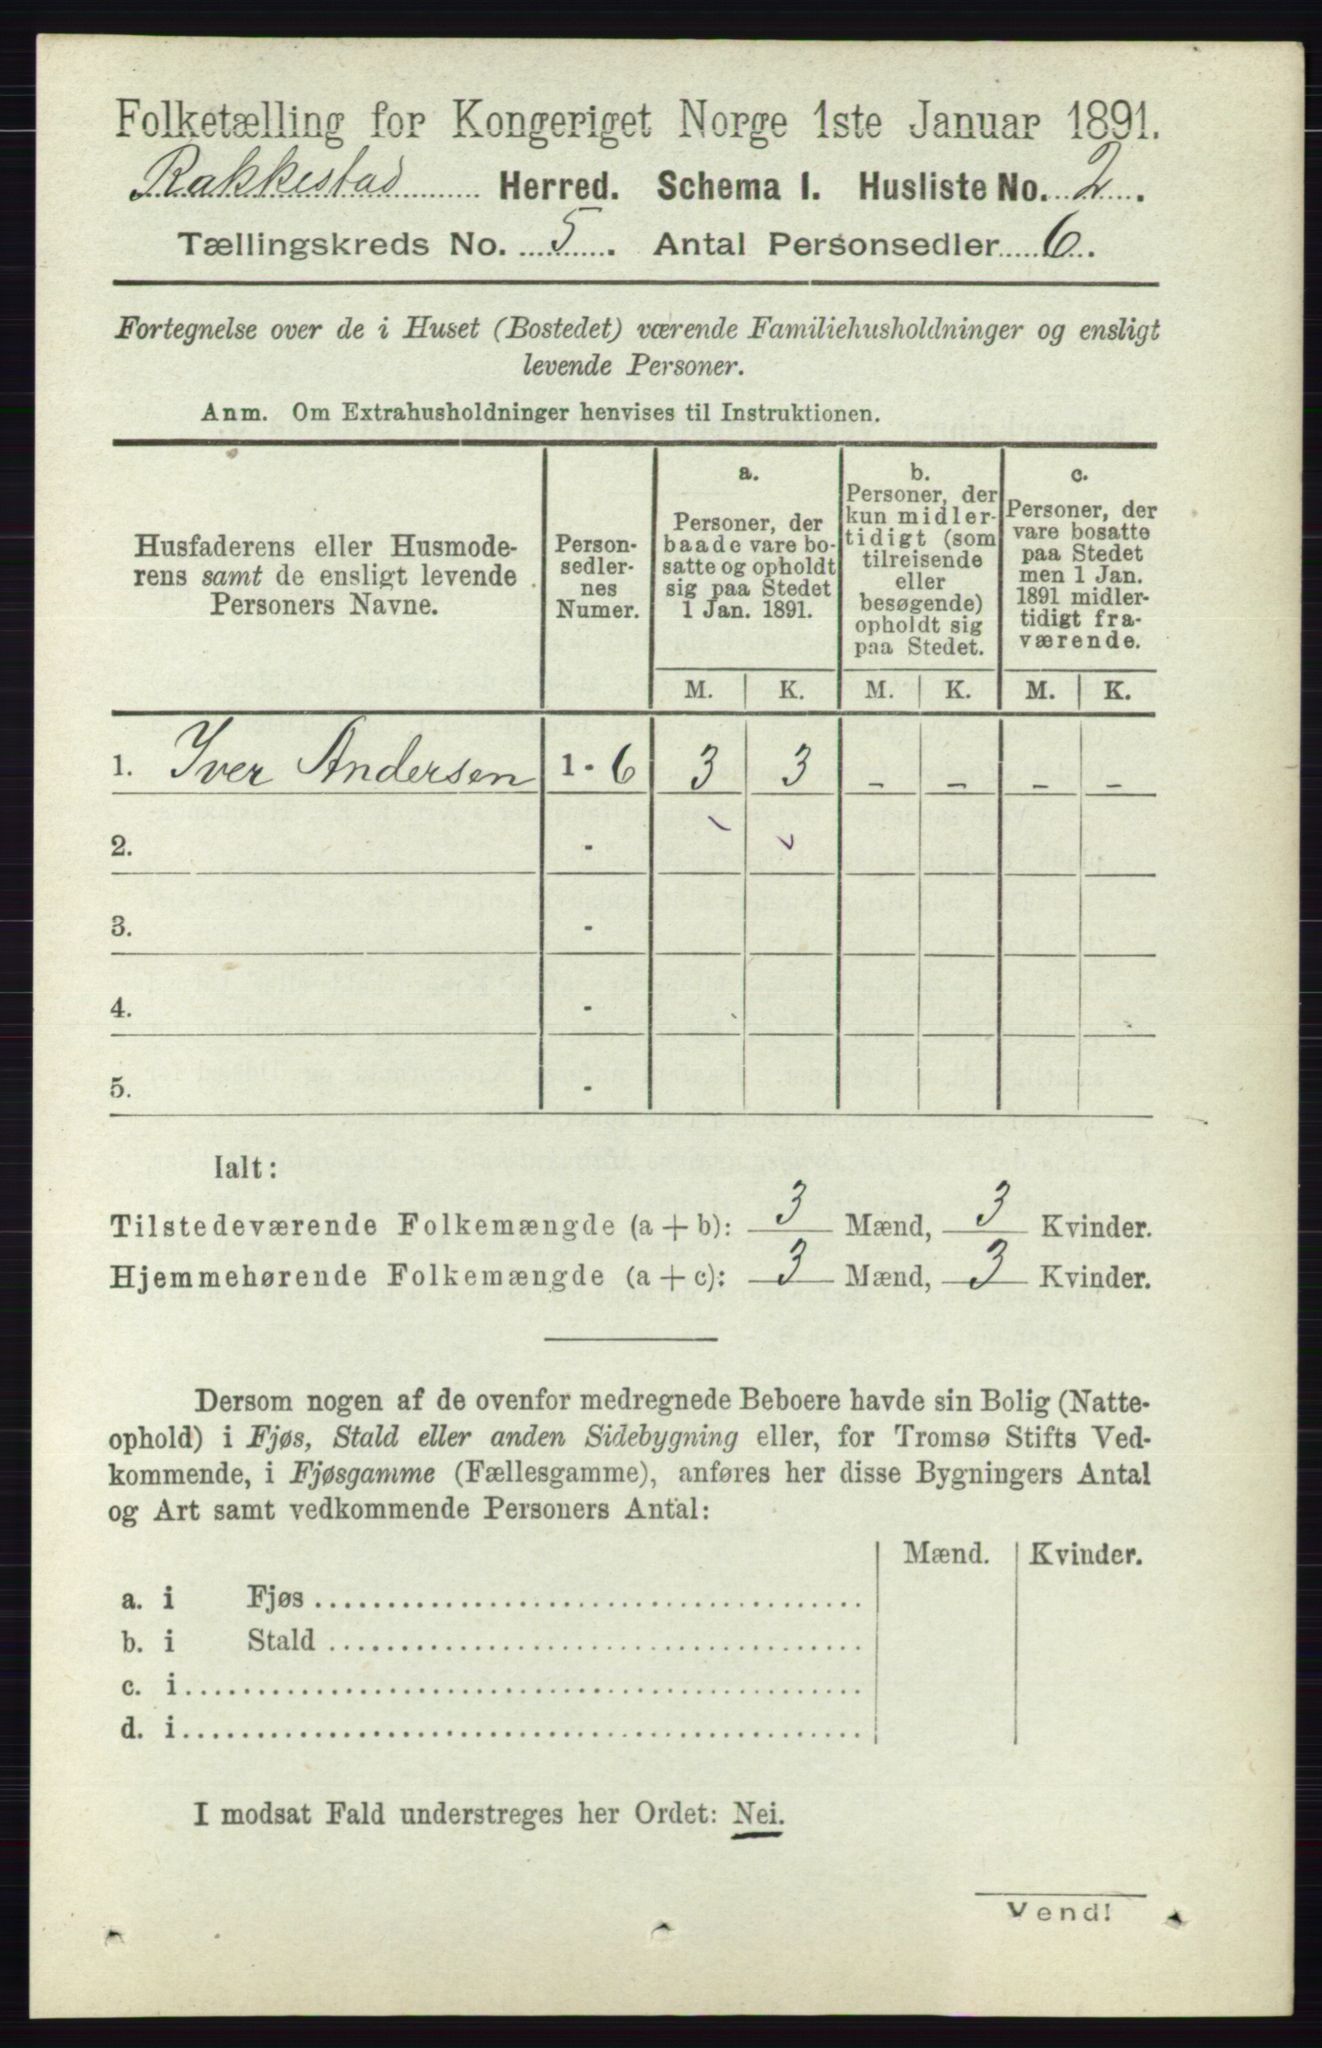 Folketælling for Kongeriget Norge 1ste Januar 1891.
Rakkestad Herred. Schema I. Husliste No. 2.
Tællingskreds No. 5. Antal Personsedler 6.
Fortegnelse over de i Huset (Bostedet) værende Familiehusholdninger og ensligt
levende Personer.
Anm. Om Extrahusholdninger henvises til Instruktionen.
Husfaderens eller Husmode-
rens samt de ensligt levende
Personers Navne.
Person-
sedler-
nes
Numer.
a.
Personer, der
baade vare bo-
satte og opholdt
sig paa Stedet
1 Jan. 1891.
b.
Personer, der
kun midler-
tidigt (som
tilreisende
eller
besøgende)
opholdt sig
paa Stedet.
c.
Personer, der
vare bosatte
paa Stedet
men 1 Jan.
1891 midler-
tidigt fra-
værende.
M. K. M. K. M. K.
1. Iver Andersen 1 - 6 3 3 - - - -
2. -
3. -
4. -
5. -
Ialt:
Tilstedeværende Folkemængde (a + b): 3 Mænd, 3 Kvinder.
Hjemmehørende Folkemængde (a + c): 3 Mænd, 3 Kvinder.
Dersom nogen af de ovenfor medregnede Beboere havde sin Bolig (Natte-
ophold) i Fjøs, Stald eller anden Sidebygning eller, for Tromsø Stifts Ved-
kommende, i Fjøsgamme (Fællesgamme), anføres her disse Bygningers Antal
og Art samt vedkommende Personers Antal:
Mænd. Kvinder.
a. i Fjøs
b. i Stald
c. i
d. i
I modsat Fald understreges her Ordet: Nei.
Vend!